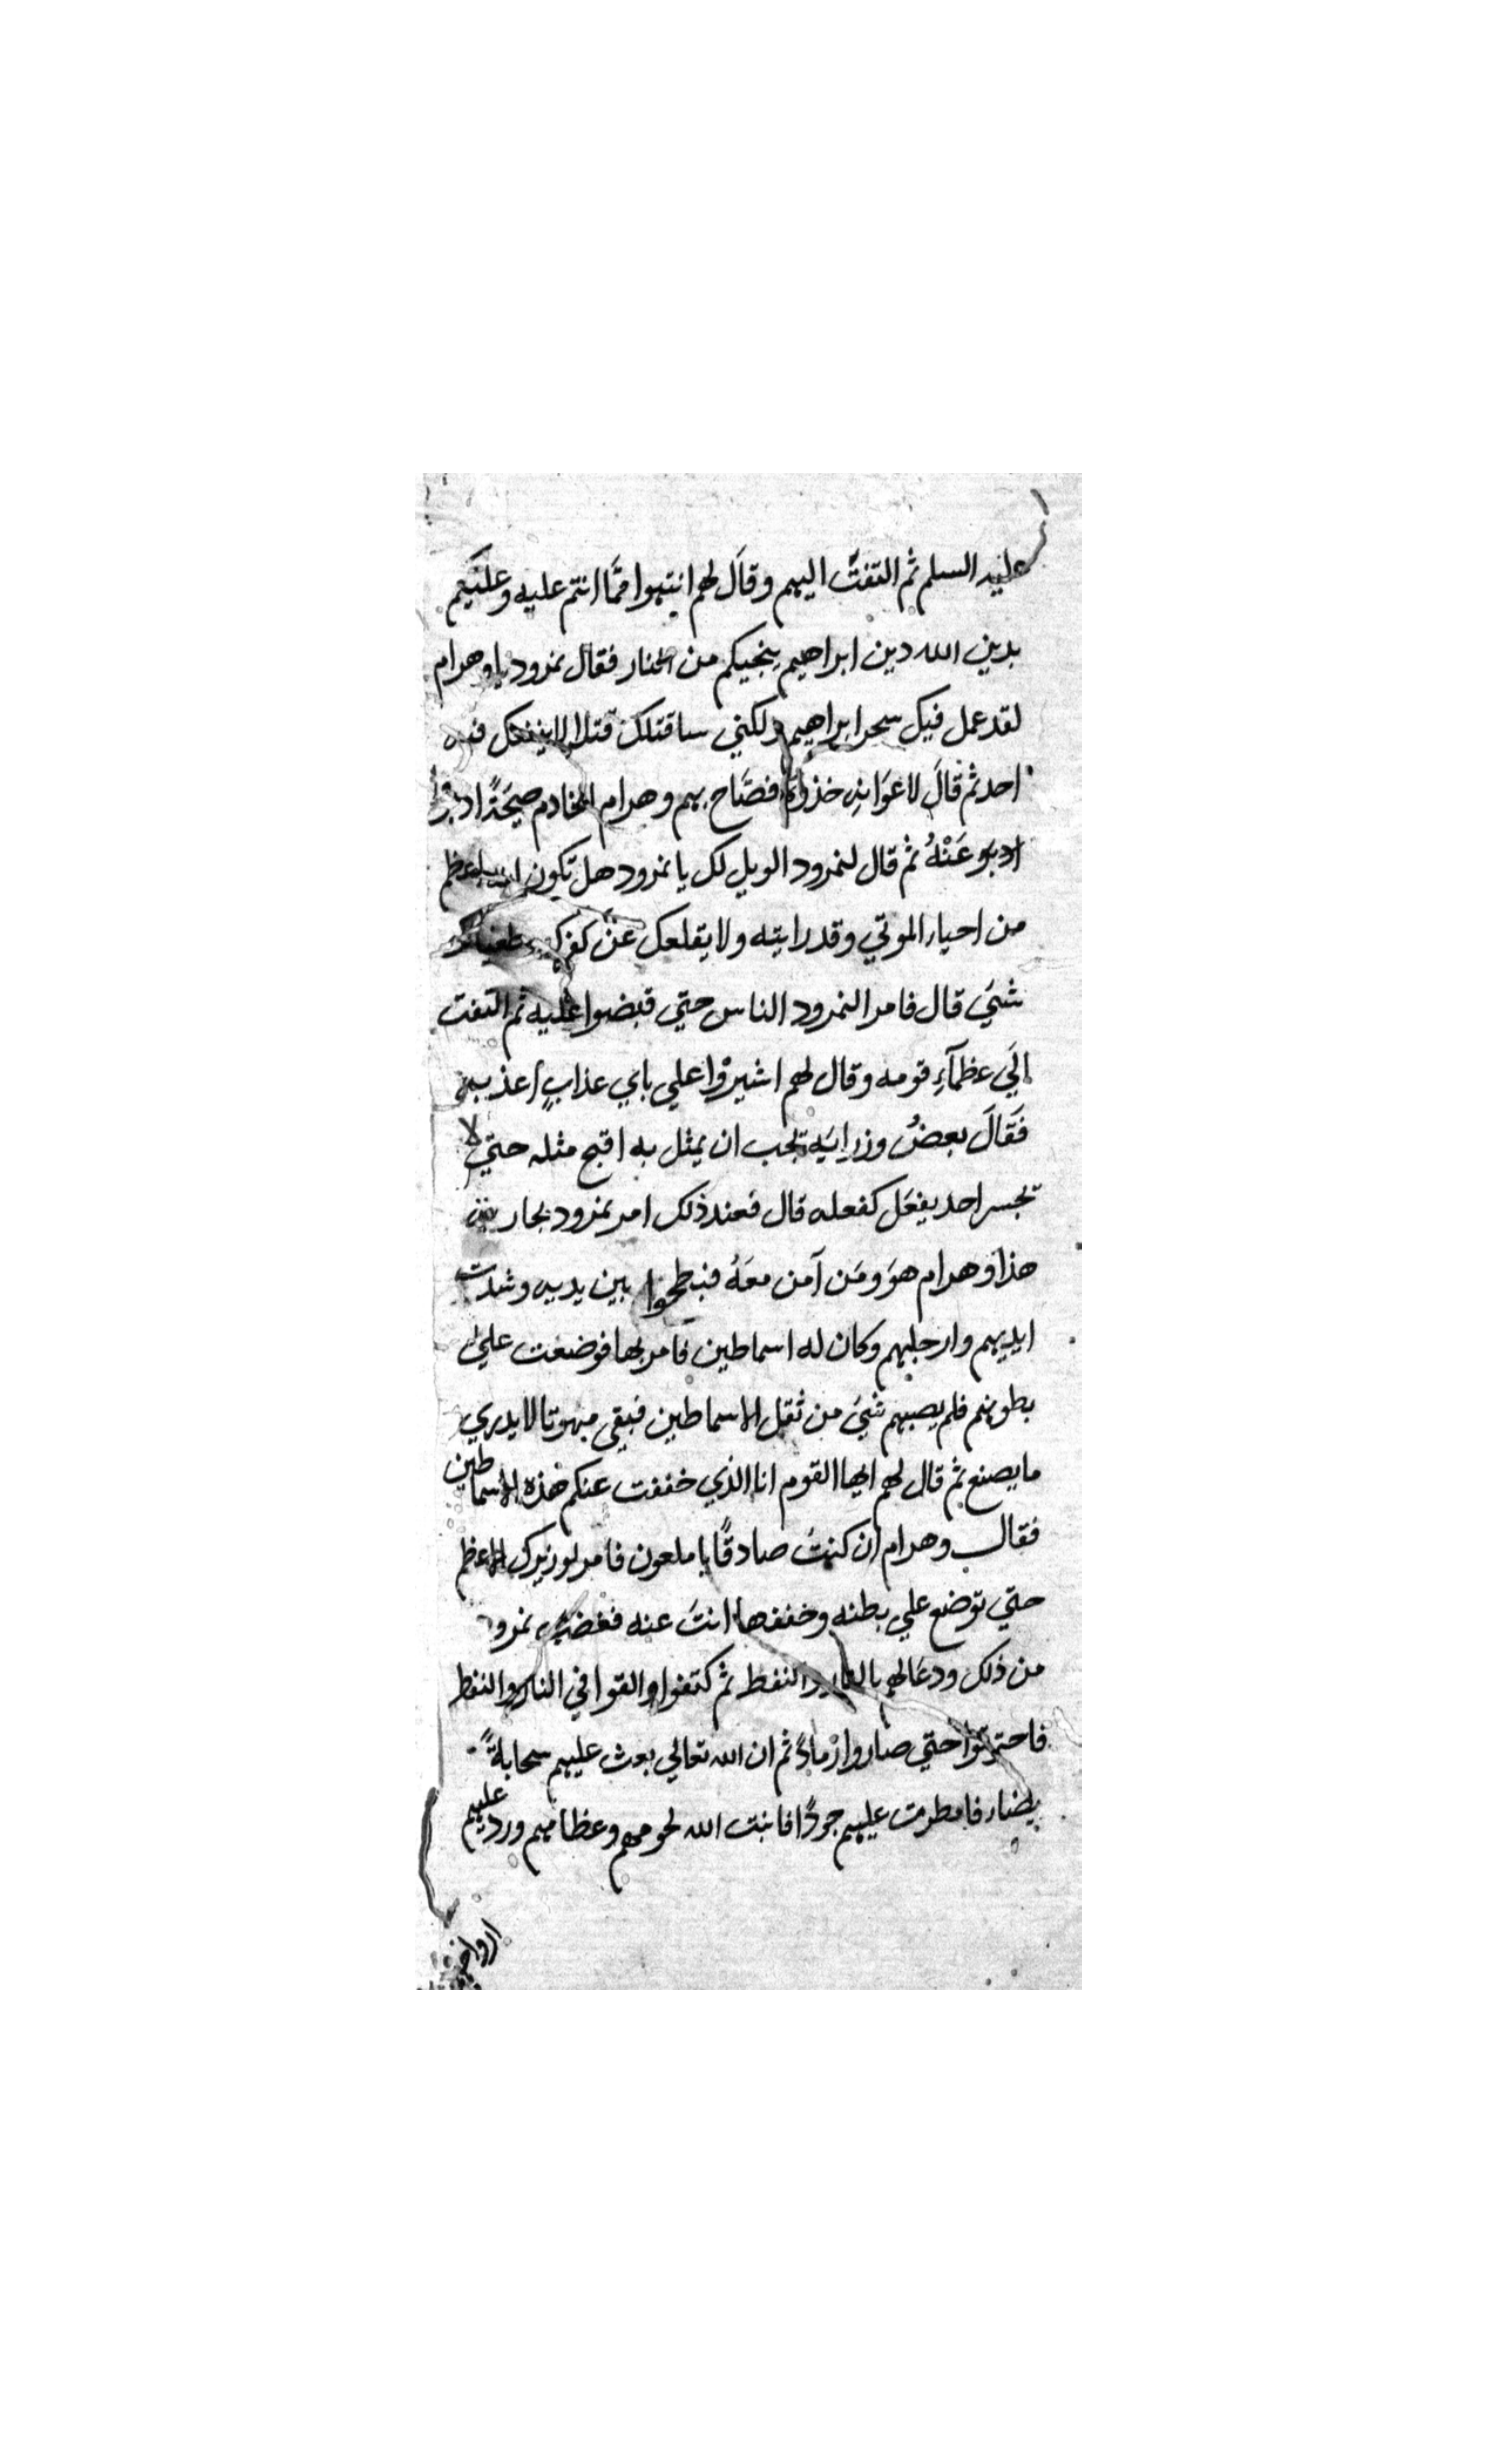 عليه السلم ثم التفت اليهم وقال لهم انتهوا مما انتم عليه وعليكم
بدين الله دين ابراهيم ينجيكم من النار فقال نمرود يا وهرام
لقد عمل فيك سحر ابراهيم ولكني ساقتلك قتلا لا ينفعك فيه
احد ثم قال لاعوانه خذوه فصاح بهم وهرام الخادم صيحةً
ادبرو عَنْهُ ثم قال لنمرود الويل لك يا نمرود هل تكون اعظم
من احياء الموتي وقد رايته ولا يقلعك عن كفرك وطغيانك
شيَ قال فامر النمرود الناس حتي قبضوا عليه ثم التفت
الَي عظمآءِ قومه وقال لهم اشيروْا علي باي عذابٍ اعذبه
فَقَالَ بعضُ وزرايَه يجب ان يمثل به اقبح مثله حتي لا
يجسر احد يفعَل كفعله قال فعند ذلك امر نمرود
هذا وهرام هوَ ومَن آمن معَهُ فبطحوا بين يديه وشدت
ايديهم وارجليهم وكان له اسماطين فامر بها فوضعت علي
بطونهم فلم يصبهم شيَ من ثقل الاسماطين فبقي مبهوتا لا يدري
ما يصنع ثم قال لهم ايها القوم انا الذي خففت عنكم هذه الاسماطين
فقال وهرام ان كنتَ صادقًا يا ملعون فامر لوزيرك الاعظم
حتي توضع علي بطنه وخففها انتَ عنه فغضب نمرود
من ذلك ودعا لهم بالنار والنفط ثم كتفوا والقوا في النار والنفط
فاحترقوا حتي صاروا رمادً ثم ان الله تعالي بعث عليهم سحابةً
بيضاء فامطرت عليهم جودًا فانبت الله لحومهم وعظامهم ورد عليهم
ارواحهم